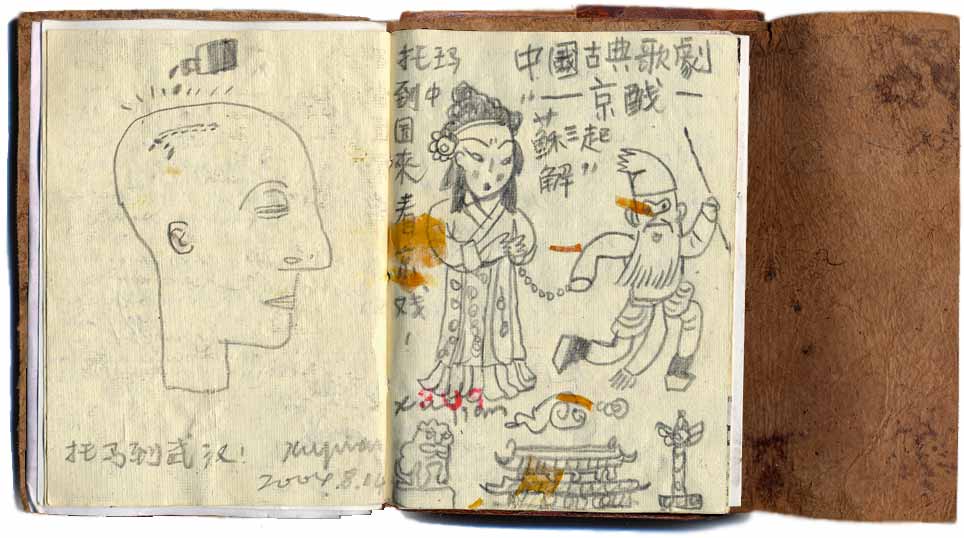 托马到武汉!
2004.8.14
托玛
到中
国
來
看
京
戏
!
中國古典歌劇
"—京戲—
蘇三起
解"